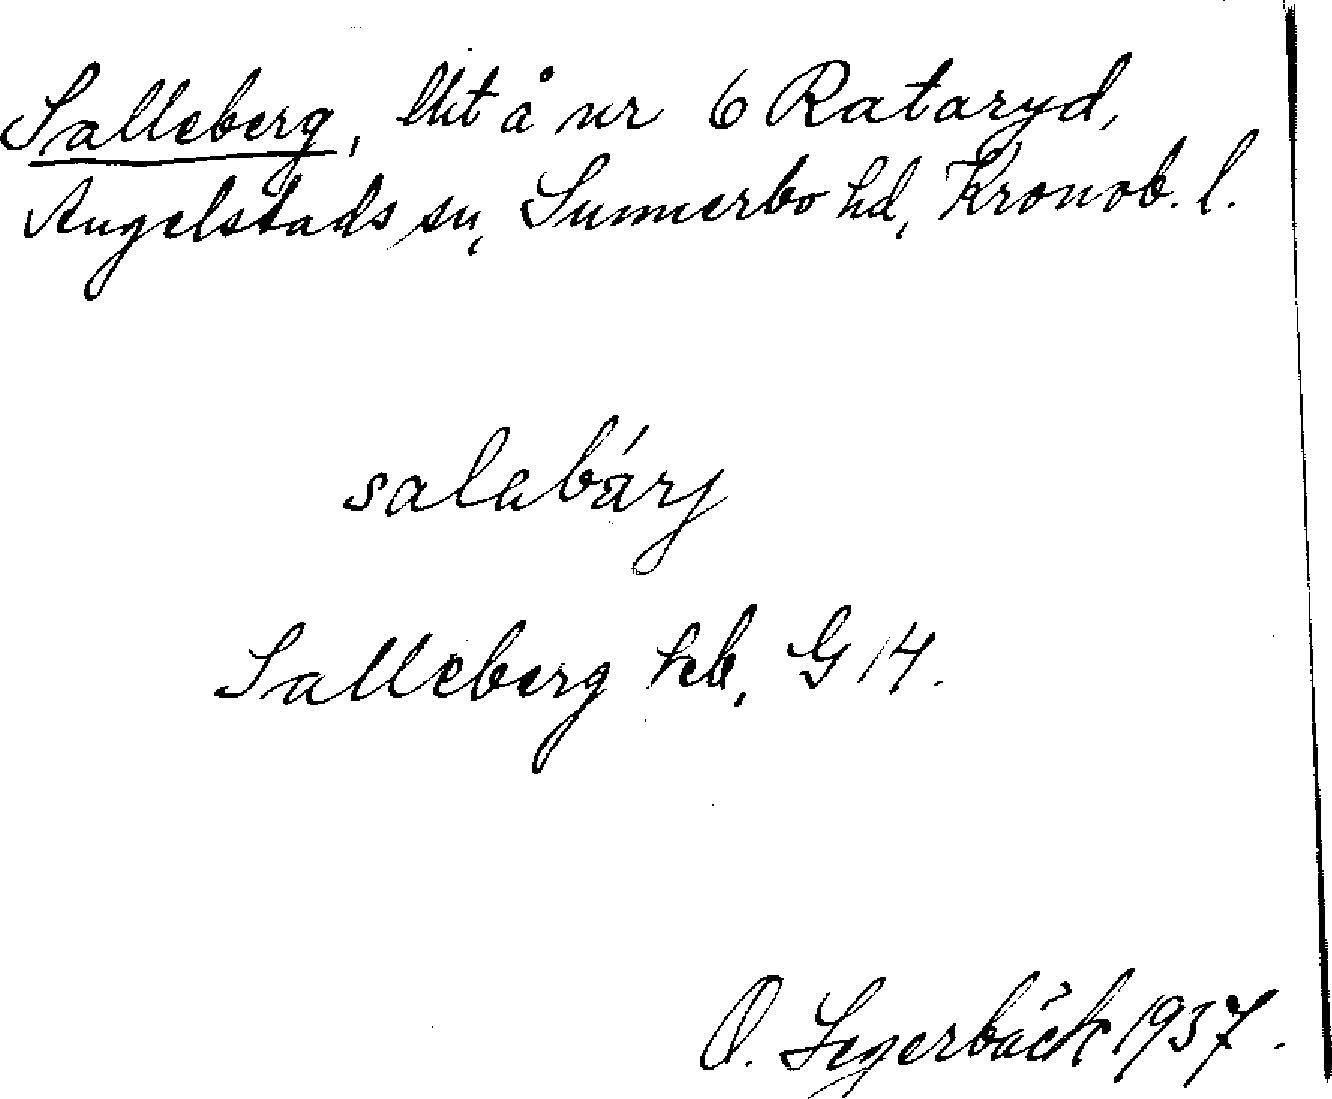 Salleberg, lht å nr 6 Rataryd,
Angelstads sn, Sunnerbo hd, Kronob. l.
salabárj
Salleberg heb, G 14.
O. Segerbäck 1937.